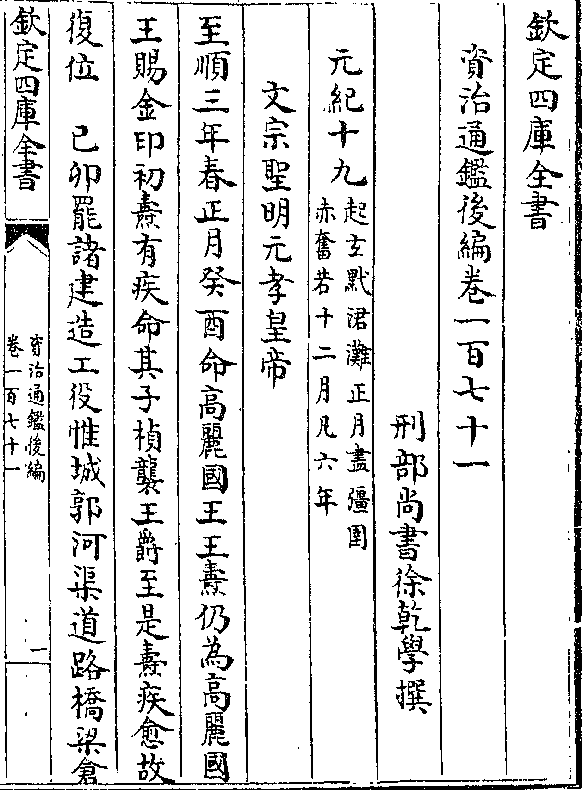 欽定四庫全書
資治通鑑後編卷一百七十一
刑部尚書徐乾學撰
元紀十九起玄黓涒灘正月盡彊圉
赤奮若十二月凡六年
文宗聖明元孝皇帝
至順三年春正月癸酉命高麗國王王燾仍為高麗國
王賜金印初燾有疾命其子楨襲王爵至是燾疾愈故
復位 己卯罷諸建造工役惟城郭河渠道路橋梁倉
欽定四庫全書
資治通鑑後編
卷一百七十一
一